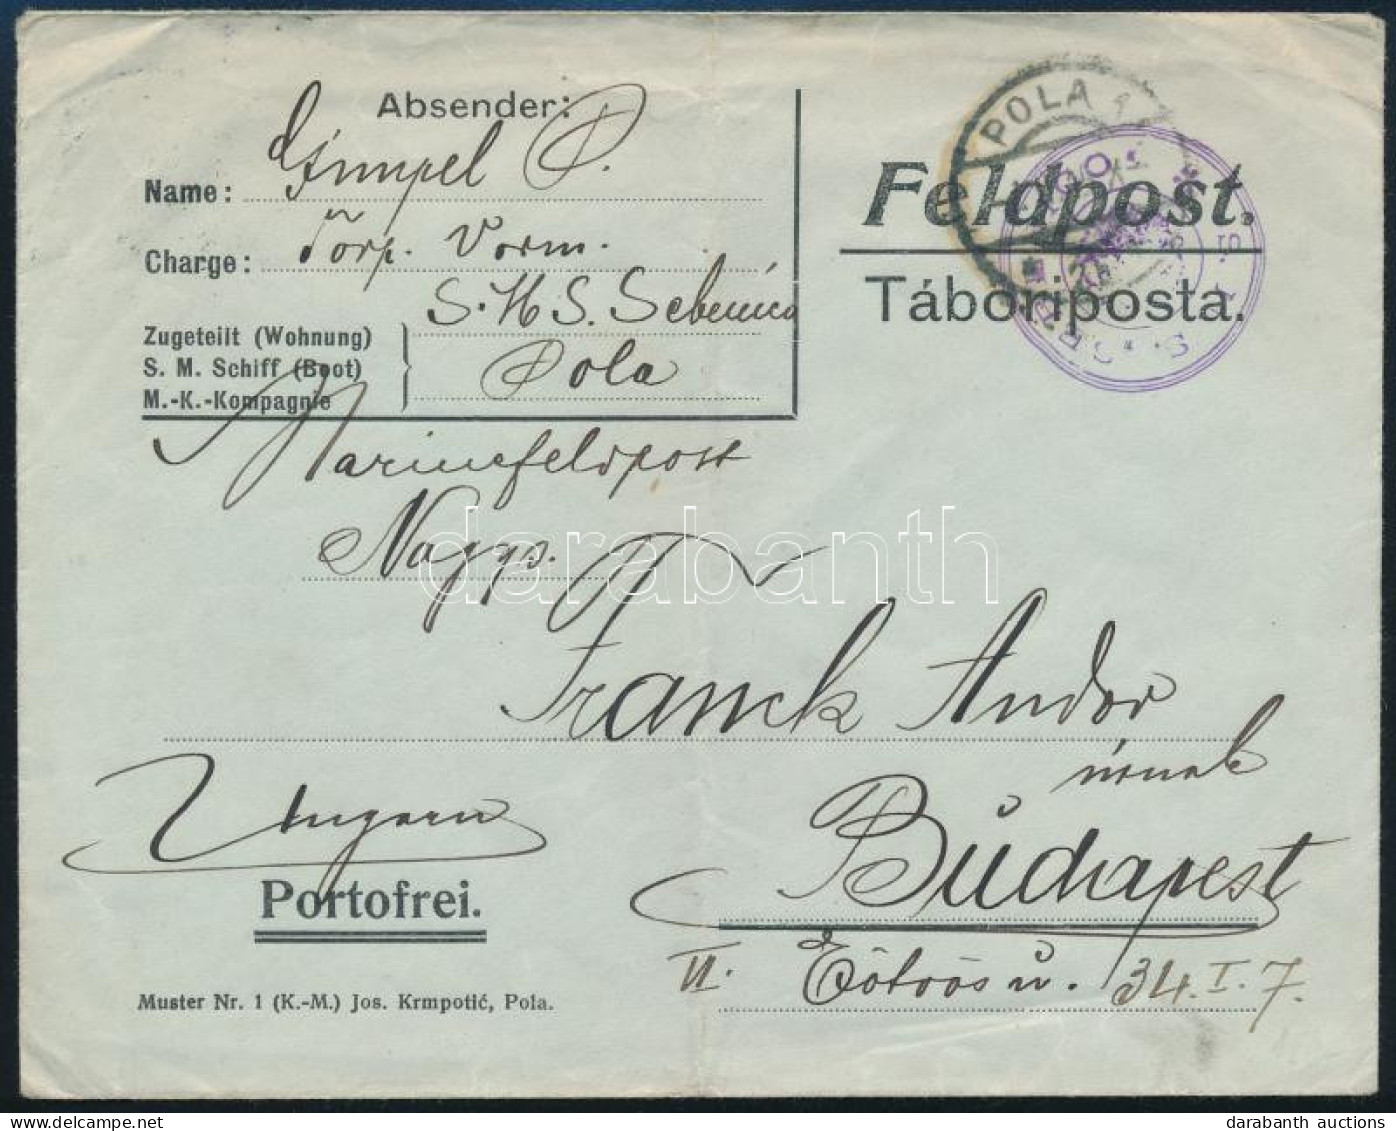 Absender:
Name: Gimpel P.
Charge: Torp. Vorm.
Zugeteilt (Wohnung)
S. M. Schiff (Boot)
M.-K.-Kompagnie
S. M. S. Sebenico
Pola
Feldpost.
Táboriposta.
POLA
Marinefeldpost
Nagys.
Franck Andor
úrnak
Budapest
Eötvös u. 34. I. 7.
Ungarn
Portofrei.
Muster Nr. 1 (K.-M.) Jos. Krmpotić, Pola.
darabanth
darabanth auctions